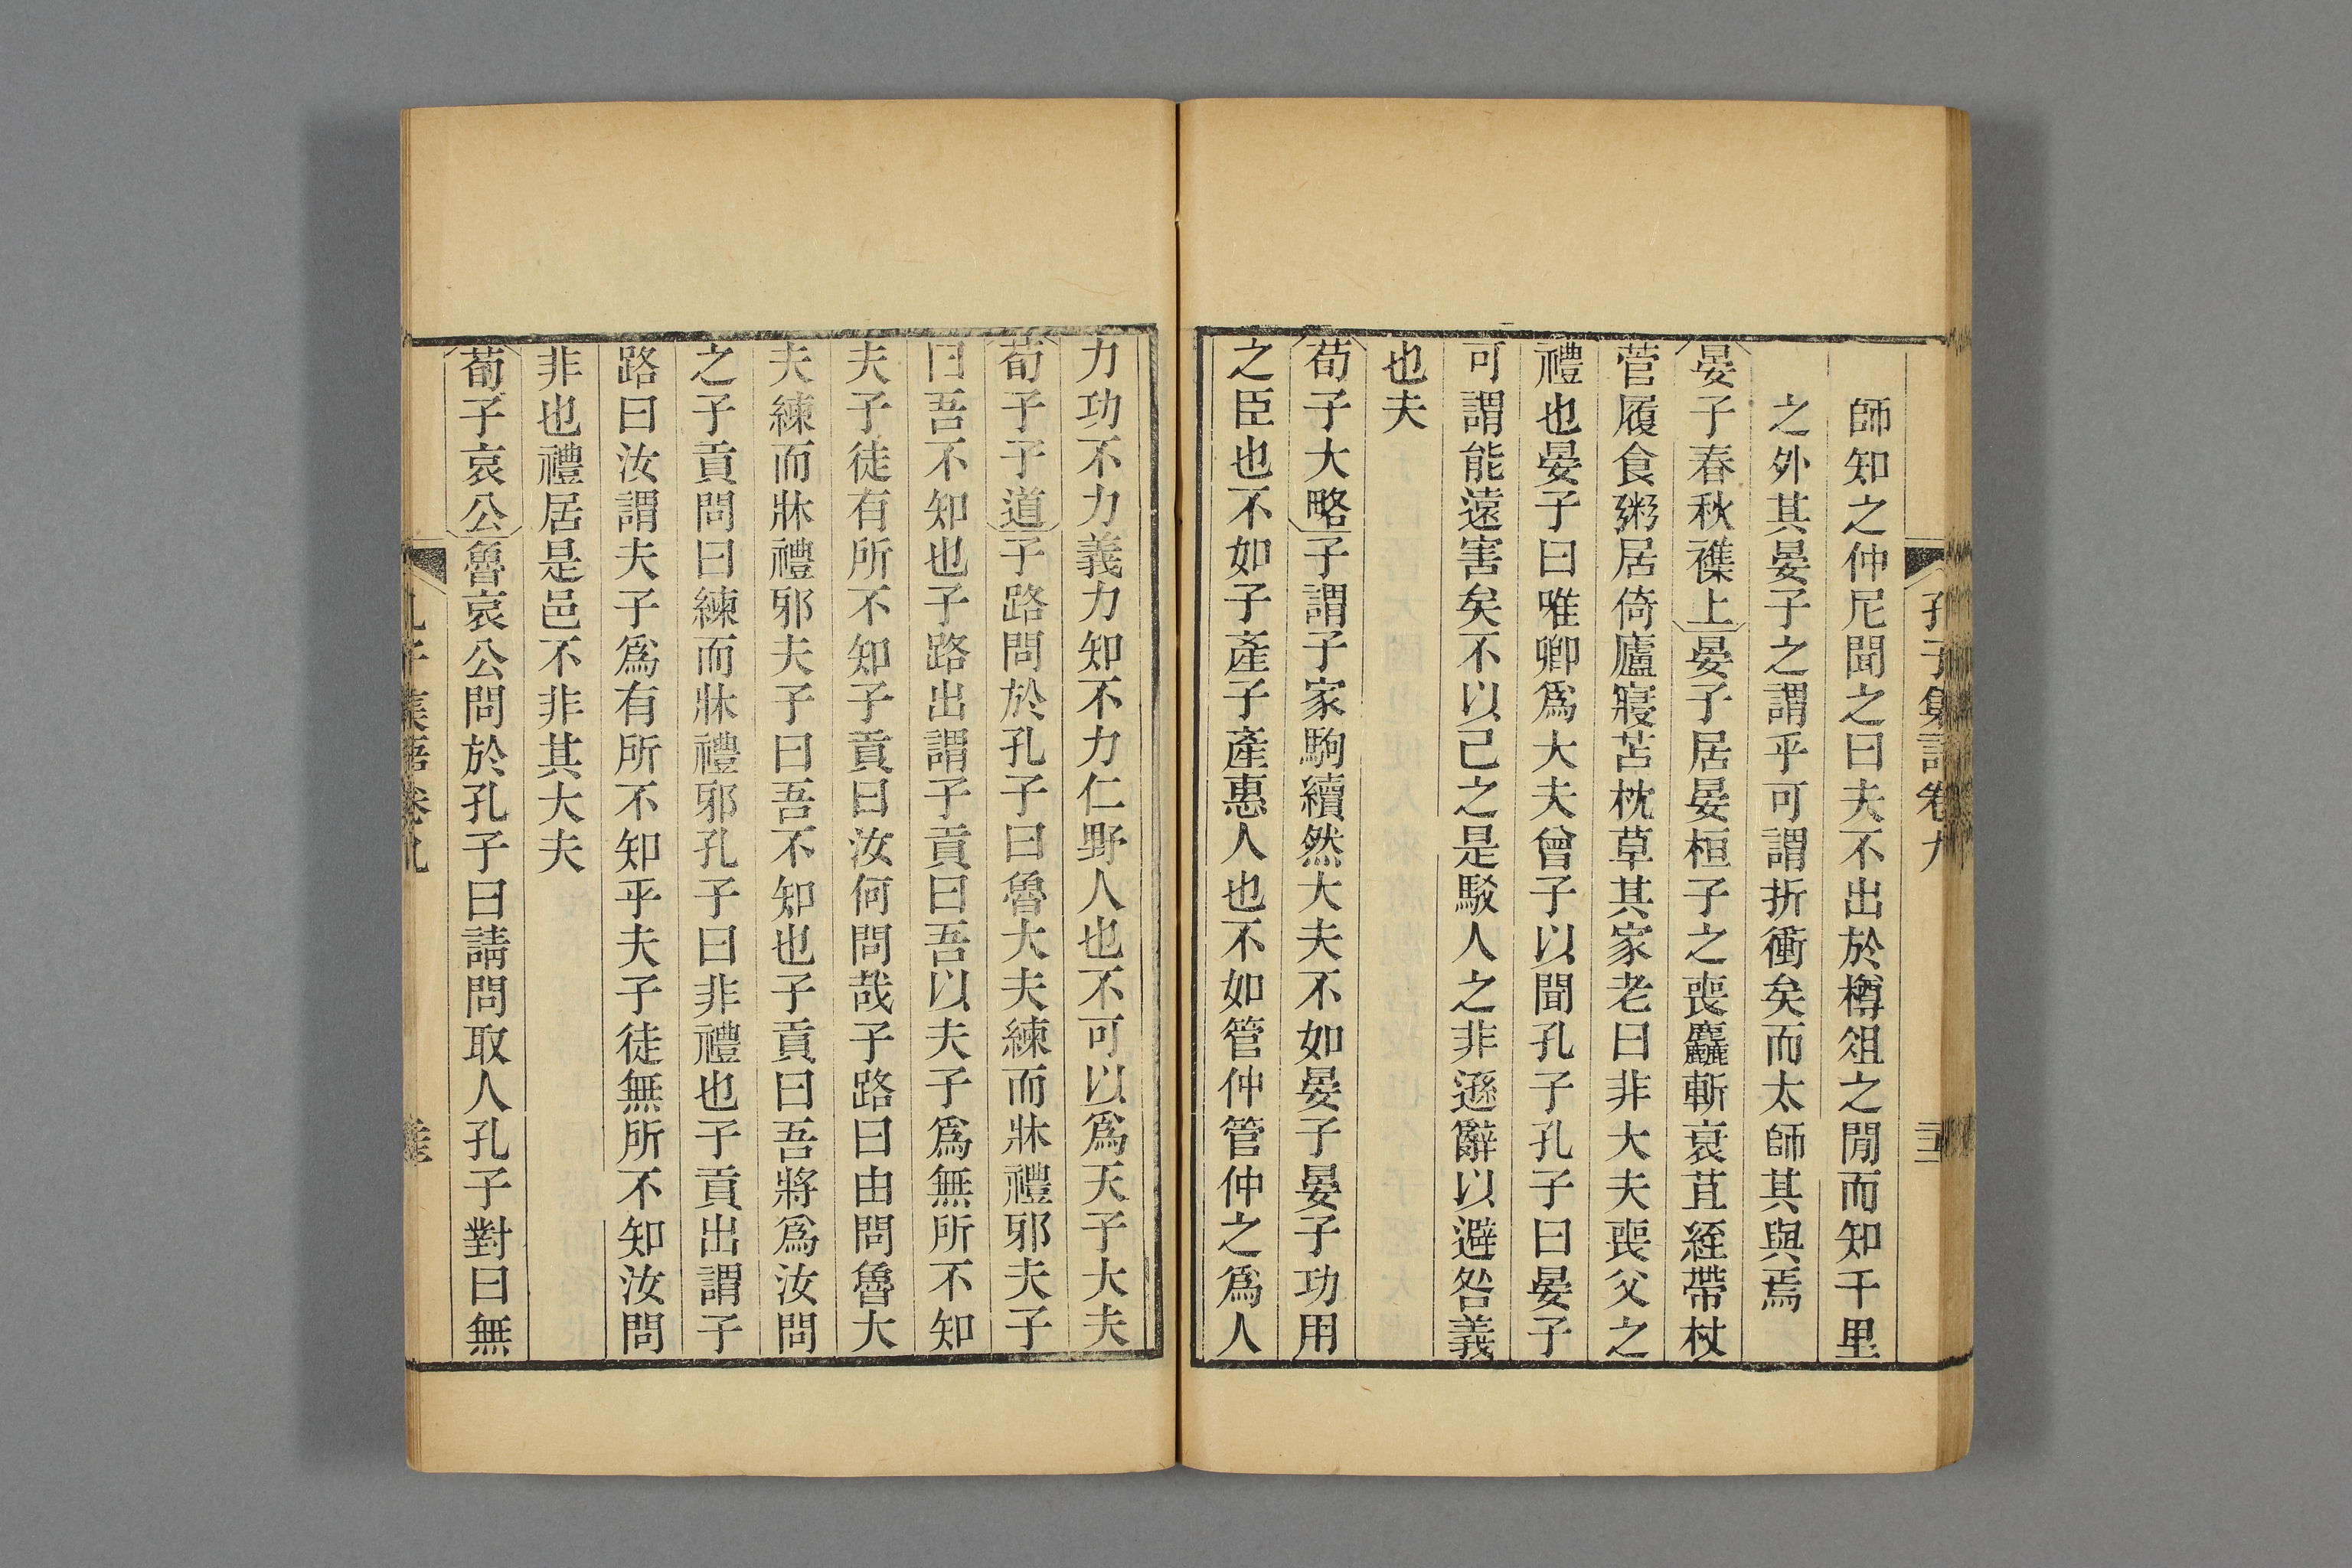 孔子集語卷九
師知之仲尼聞之曰夫不出於樽俎之閒而知千里
之外其晏子之謂乎可謂折衝矣而太師其與焉
晏子春秋襍上晏子居晏桓子之喪麤斬衰苴絰帶杖
菅履食粥居倚廬寢苫枕草其家老曰非大夫喪父之
禮也晏子曰唯卿爲大夫曾子以聞孔子孔子曰晏子
可謂能遠害矣不以己之是駁人之非遜辭以避咎義
也夫
荀子大略子謂子家駒續然大夫不如晏子晏子功用
之臣也不如子產子產惠人也不如管仲管仲之爲人
力功不力義力知不力仁野人也不可以爲天子大夫
荀子子道子路問於孔子曰魯大夫練而牀禮邪夫子
曰吾不知也子路出謂子貢曰吾以夫子爲無所不知
夫子徒有所不知子貢曰汝何問哉子路曰由問魯大
夫練而牀禮邪夫子曰吾不知也子貢曰吾將爲汝問
之子貢問曰練而牀禮邪孔子曰非禮也子貢出謂子
路曰汝謂夫子爲有所不知乎夫子徒無所不知汝問
非也禮居是邑不非其大夫
荀子哀公魯哀公問於孔子曰請問取人孔子對曰無
孔子集語卷九